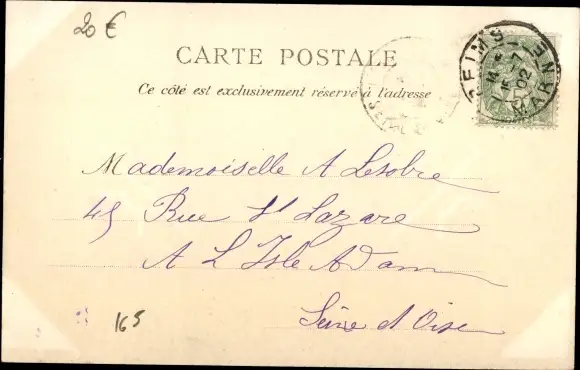 20 €
CARTE POSTALE
Ce côté est exclusivement réservé à l'adresse
REIMS MARNE
7 02
Mademoiselle A Lesobre
45 Rue St Lazare
A L'Isle Adam
Seine et Oise
165